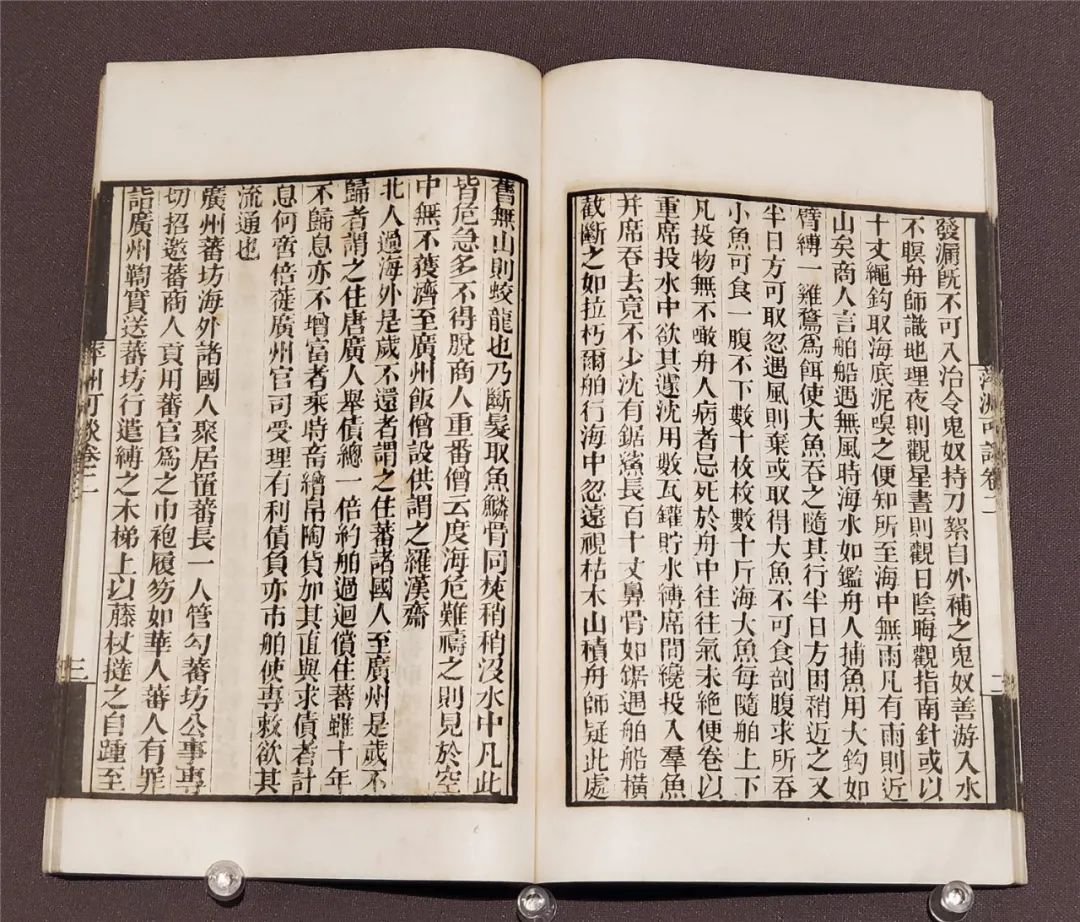 萍洲可談卷二
二
發漏旣不可入治令鬼奴持刀絮自外補之鬼奴善游入水
不瞑舟師識地理夜則觀星晝則觀日陰晦觀指南針或以
十丈繩鈎取海底泥嗅之便知所至海中無雨凡有雨則近
山矣商人言舶船遇無風時海水如鑑舟人捕魚用大鈎如
臂縛一雞鶩爲餌使大魚吞之隨其行半日方困稍近之又
半日方可取忽遇風則棄或取得大魚不可食剖腹求所吞
小魚可食一腹不下數十枚枚數十斤海大魚每隨舶上下
凡投物無不噉舟人病者忌死於舟中往往氣未絕便卷以
重席投水中欲其遽沈用數瓦罐貯水縛席間纔投入羣魚
并席吞去竟不少沈有鋸鯊長百十丈鼻骨如鋸遇舶船橫
截斷之如拉朽爾舶行海中忽遠視枯木山積舟師疑此處
舊無山則蛟龍也乃斷髮取魚鱗骨同焚稍稍沒水中凡此
皆危急多不得脫商人重番僧云度海危難禱之則見於空
中無不獲濟至廣州飯僧設供謂之羅漢齋
北人過海外是歲不還者謂之住蕃諸國人至廣州是歲不
歸者謂之住唐廣人舉債總一倍約舶過迴償住蕃雖十年
不歸息亦不增富者乘時畜繒帛陶貨加其直與求債者計
息何啻倍蓰廣州官司受理有利債負亦市舶使專敕欲其
流通也
廣州蕃坊海外諸國人聚居置蕃長一人管勾蕃坊公事專
切招邀蕃商人貢用蕃官爲之巾袍履笏如華人蕃人有罪
詣廣州鞫實送蕃坊行遣縛之木梯上以藤杖撻之自踵至
萍州可談卷二
三